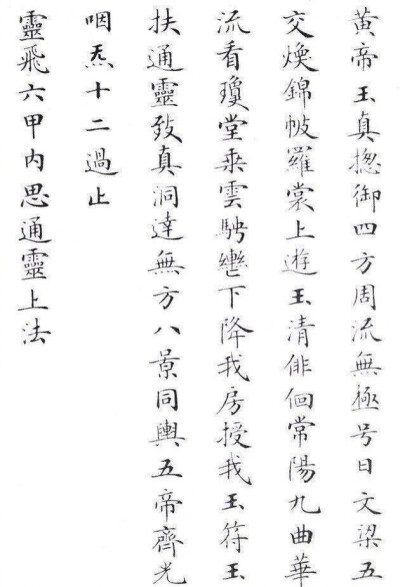 黄帝玉真揔御四方周流無極号曰文梁五
交煥錦帔羅裳上遊玉清俳佪常陽九曲華
流看瓊堂乘雲駃轡下降我房授我玉符玉
扶通靈致真洞達無方八景同輿五帝齊光
咽炁十二過止
靈飛六甲内思通靈上法